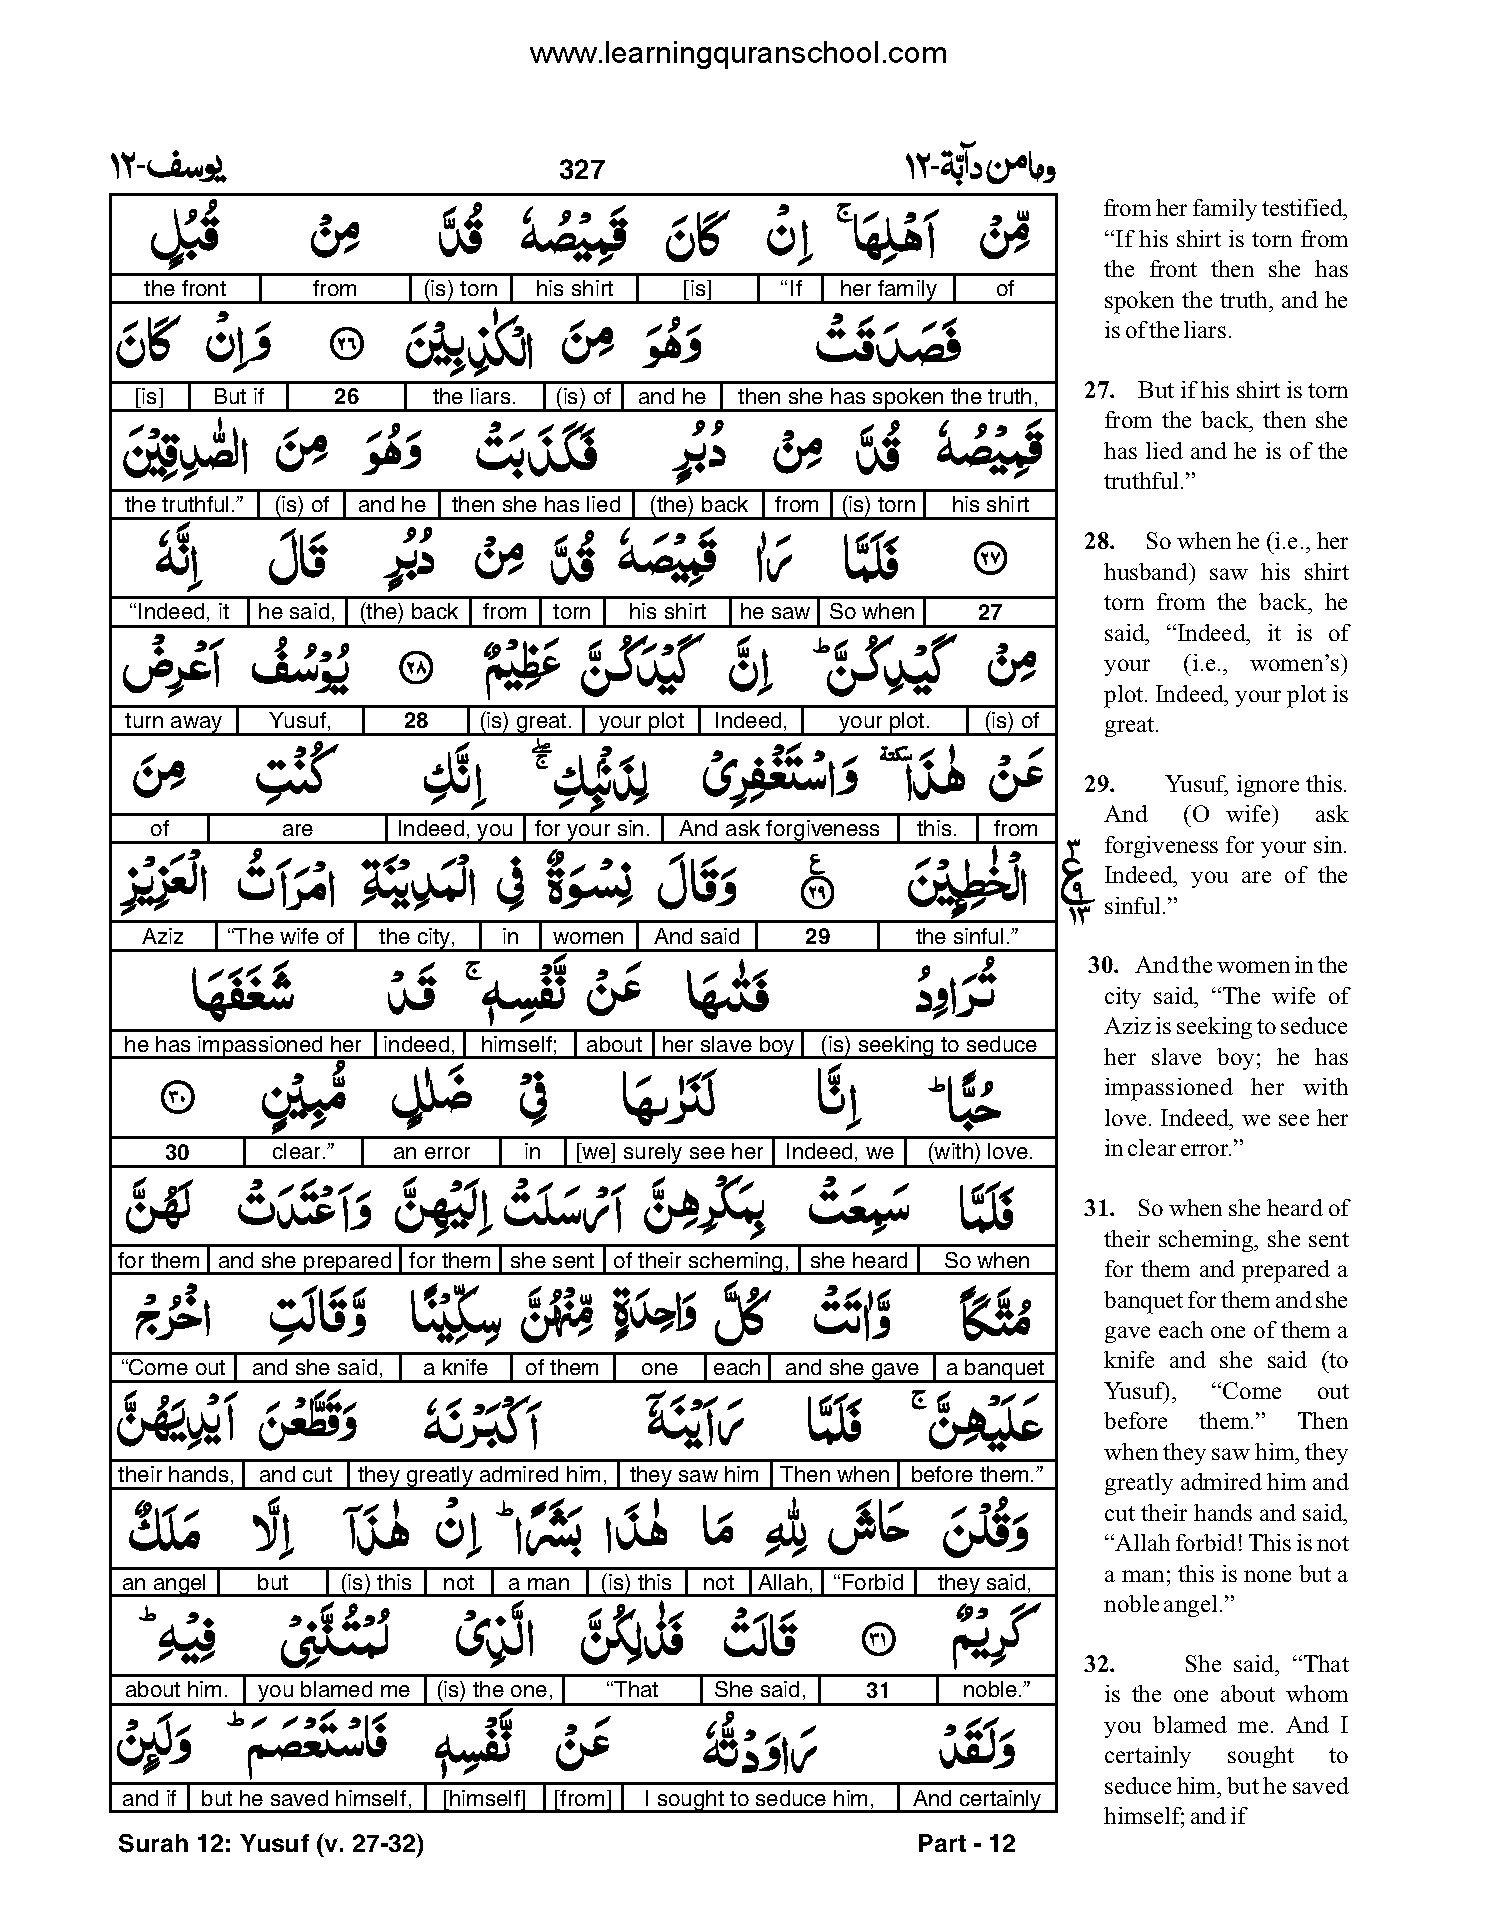 www.learningquranschool.com
يوسف-١٢ 327 ومامن دآبّة-١٢
مِّنْ اَهْلِهَا ۚ اِنْ كَانَ قَمِيْصُهٗ قُدَّ مِنْ قُبُلٍ
the front from (is) torn his shirt [is] “If her family of
فَصَدَقَتْ وَهُوَ مِنَ الْكٰذِبِيْنَ ٢٦ وَاِنْ كَانَ
[is] But if 26 the liars. (is) of and he then she has spoken the truth,
قَمِيْصُهٗ قُدَّ مِنْ دُبُرٍ فَكَذَبَتْ وَهُوَ مِنَ الصّٰدِقِيْنَ
the truthful.” (is) of and he then she has lied (the) back from (is) torn his shirt
٢٧ فَلَمَّا رَاٰ قَمِيْصَهٗ قُدَّ مِنْ دُبُرٍ قَالَ اِنَّهٗ
“Indeed, it he said, (the) back from torn his shirt he saw So when 27
مِنْ كَيْدِكُنَّ ؕ اِنَّ كَيْدَكُنَّ عَظِيْمٌ ٢٨ يُوْسُفُ اَعْرِضْ
turn away Yusuf, 28 (is) great. your plot Indeed, your plot. (is) of
عَنْ هٰذَا ٚسكتة وَاسْتَغْفِرِيْ لِذَنْۢبِكِ ۖۚ اِنَّكِ كُنْتِ مِنَ
of are Indeed, you for your sin. And ask forgiveness this. from
الْخٰطِـِٕيْنَ ٢٩ ع وَقَالَ نِسْوَةٌ فِي الْمَدِيْنَةِ امْرَاَتُ الْعَزِيْزِ
Aziz “The wife of the city, in women And said 29 the sinful.”
تُرَاوِدُ فَتٰىهَا عَنْ نَّفْسِهٖ ۚ قَدْ شَغَفَهَا
he has impassioned her indeed, himself; about her slave boy (is) seeking to seduce
حُبًّا ؕ اِنَّا لَنَرٰىهَا فِيْ ضَلٰلٍ مُّبِيْنٍ ٣٠
30 clear.” an error in [we] surely see her Indeed, we (with) love.
فَلَمَّا سَمِعَتْ بِمَكْرِهِنَّ اَرْسَلَتْ اِلَيْهِنَّ وَاَعْتَدَتْ لَهُنَّ
for them and she prepared for them she sent of their scheming, she heard So when
مُتَّكَاً وَّاٰتَتْ كُلَّ وَاحِدَةٍ مِّنْهُنَّ سِكِّيْنًا وَّقَالَتِ اخْرُجْ
“Come out and she said, a knife of them one each and she gave a banquet
عَلَيْهِنَّ ۚ فَلَمَّا رَاَيْنَهٗۤ اَكْبَرْنَهٗ وَقَطَّعْنَ اَيْدِيَهُنَّ
their hands, and cut they greatly admired him, they saw him Then when before them.”
وَقُلْنَ حَاشَ لِلّٰهِ مَا هٰذَا بَشَرًا ؕ اِنْ هٰذَاۤ اِلَّا مَلَكٌ
an angel but (is) this not a man (is) this not Allah, “Forbid they said,
كَرِيْمٌ ٣١ قَالَتْ فَذٰلِكُنَّ الَّذِيْ لُمْتُنَّنِيْ فِيْهِ ؕ
about him. you blamed me (is) the one, “That She said, 31 noble.”
وَلَقَدْ رَاوَدْتُّهٗ عَنْ نَّفْسِهٖ فَاسْتَعْصَمَ ؕ وَلَئِنْ
and if but he saved himself, [himself] [from] I sought to seduce him, And certainly
from her family testified,
“If his shirt is torn from
the front then she has
spoken the truth, and he
is of the liars.
27. But if his shirt is torn
from the back, then she
has lied and he is of the
truthful.”
28. So when he (i.e., her
husband) saw his shirt
torn from the back, he
said, “Indeed, it is of
your (i.e., women’s)
plot. Indeed, your plot is
great.
29. Yusuf, ignore this.
And (O wife) ask
forgiveness for your sin.
Indeed, you are of the
sinful.”
٣
ع
٩
١٣
30. And the women in the
city said, “The wife of
Aziz is seeking to seduce
her slave boy; he has
impassioned her with
love. Indeed, we see her
in clear error.”
31. So when she heard of
their scheming, she sent
for them and prepared a
banquet for them and she
gave each one of them a
knife and she said (to
Yusuf), “Come out
before them.” Then
when they saw him, they
greatly admired him and
cut their hands and said,
“Allah forbid! This is not
a man; this is none but a
noble angel.”
32. She said, “That
is the one about whom
you blamed me. And I
certainly sought to
seduce him, but he saved
himself; and if
Surah 12: Yusuf (v. 27-32) Part - 12